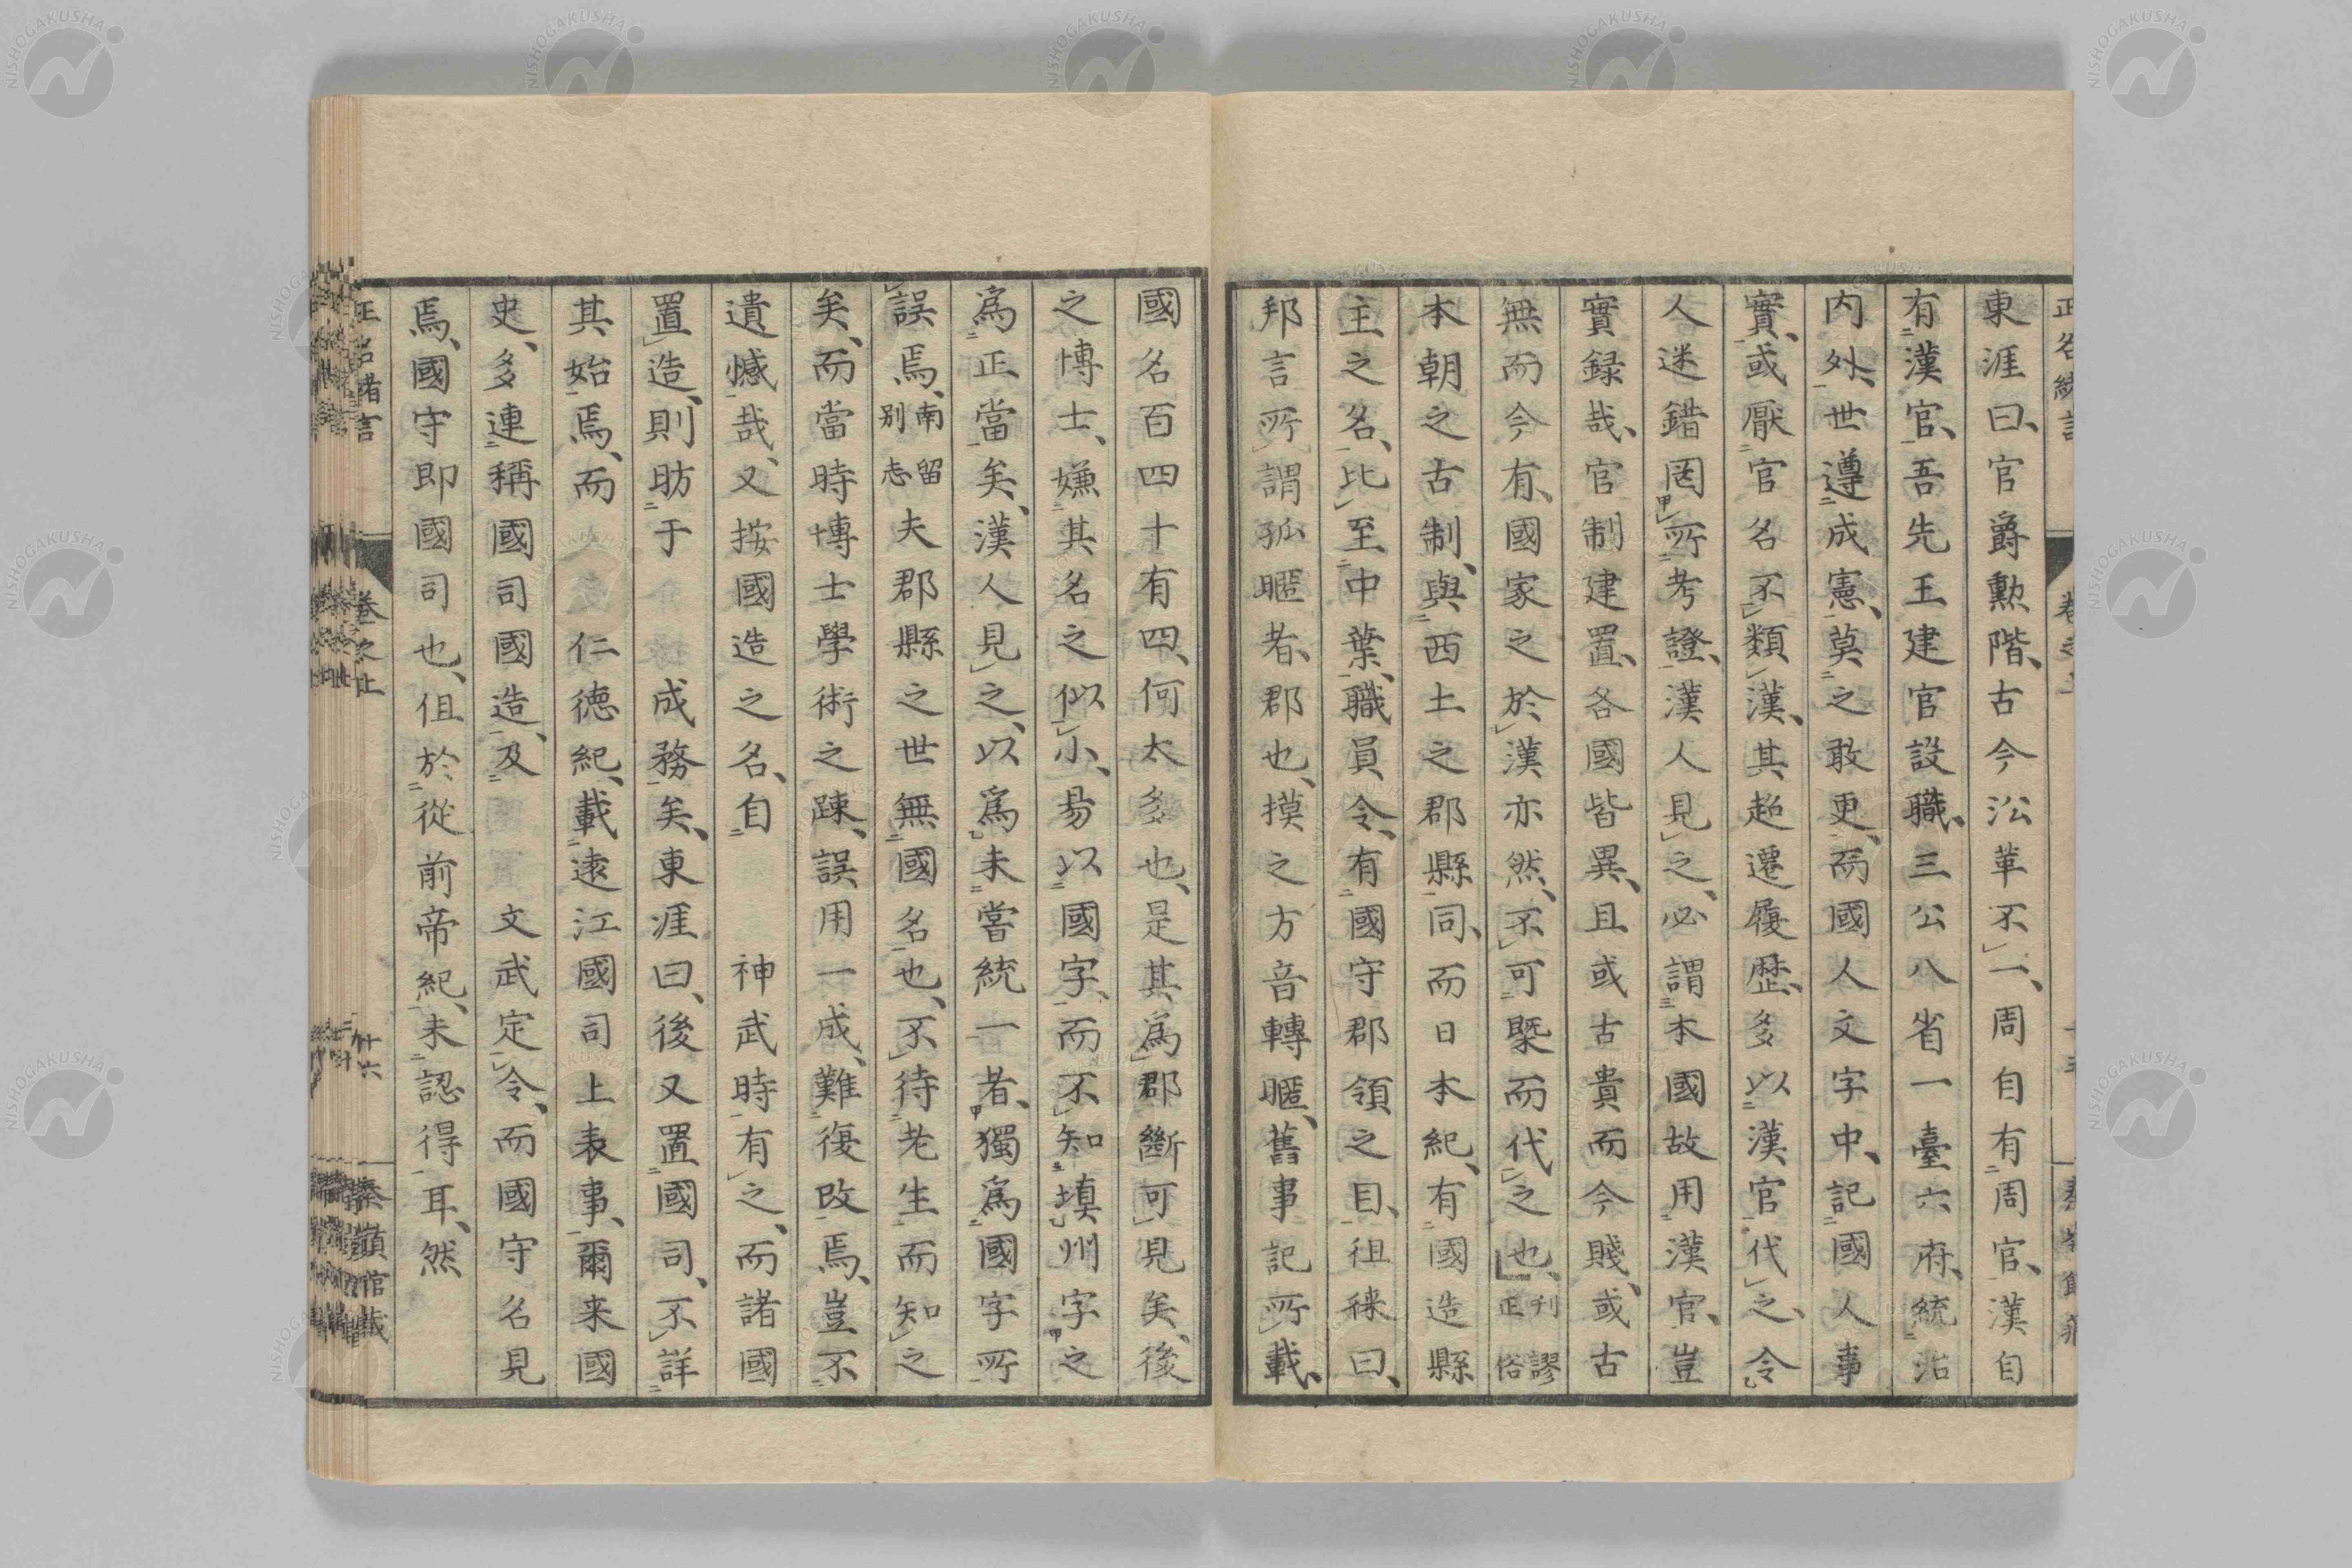 東涯曰、官爵勲階、古今㳂革不一、周自有周官、漢自
有漢官、吾先王建官設職、三公八省一臺六府、統治
内外、世遵成憲、莫之敢更、而國人文字中、記國人事
實、或厭官名不類漢、其超遷履歴、多以漢官代之、令
人迷錯罔所考證、漢人見之、必謂本國故用漢官、豈
實録哉、官制建置、各國皆異、且或古貴而今賤、或古
無而今有、國家之於漢亦然、不可槩而代之也、刊謬正俗
本朝之古制、與西土之郡縣同、而日本紀、有國造縣
主之名、比至中葉、職員令、有國守郡領之目、徂徠曰、
邦言所謂孤𭺊者、郡也、摸之方音轉𭺊、舊事記所載、
國名百四十有四、何太多也、是其為郡斷可見矣、後
之博士、嫌其名之似小、易以國字、而不知填州字之
為正當矣、漢人見之、以為未嘗統一者、獨為國字所
誤焉、南留別志夫郡縣之世無國名也、不待老生而知之
矣、而當時博士學術之踈、誤用一成、難復改焉、豈不
遺憾哉、又按國造之名、自神武時有之、而諸國
置造、則昉于成務矣、東涯曰、後又置國司、不詳
其始焉、而仁德紀、載遠江國司上表事、爾来國
史、多連稱國司國造、及文武定令、而國守名見
焉、國守即國司也、但於從前帝紀、未認得耳、然
正名緒言 卷之上 廿六